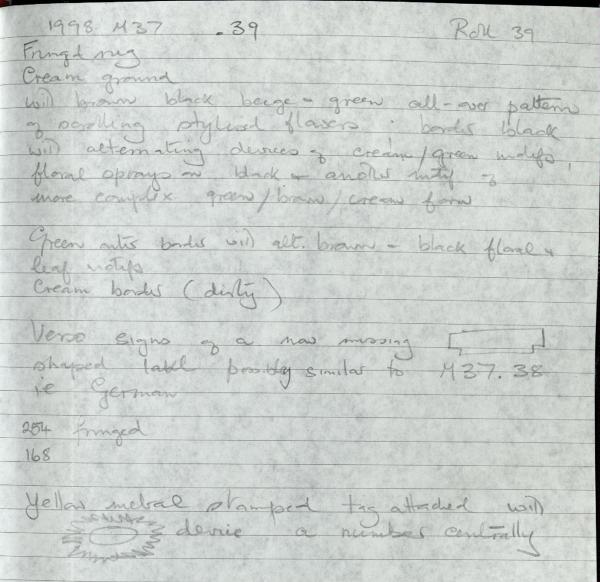 1998 M37 .39 Roll 39
Fringd rug
Cream ground
with brown black beige + green all-over pattern
of scrolling stylised flowers. border black
with alternating devices of cream/green motifs,
floral sprays on black + another motif of
more complex green/brown/cream form
Green outer border with alt. brown + black floral +
leaf motifs
Cream border (dirty)
Verso signs of a now missing
shaped label possibly similar to M37.38
ie German
254 fringed
168
Yellow metal stamped tag attached with
device a number centrally